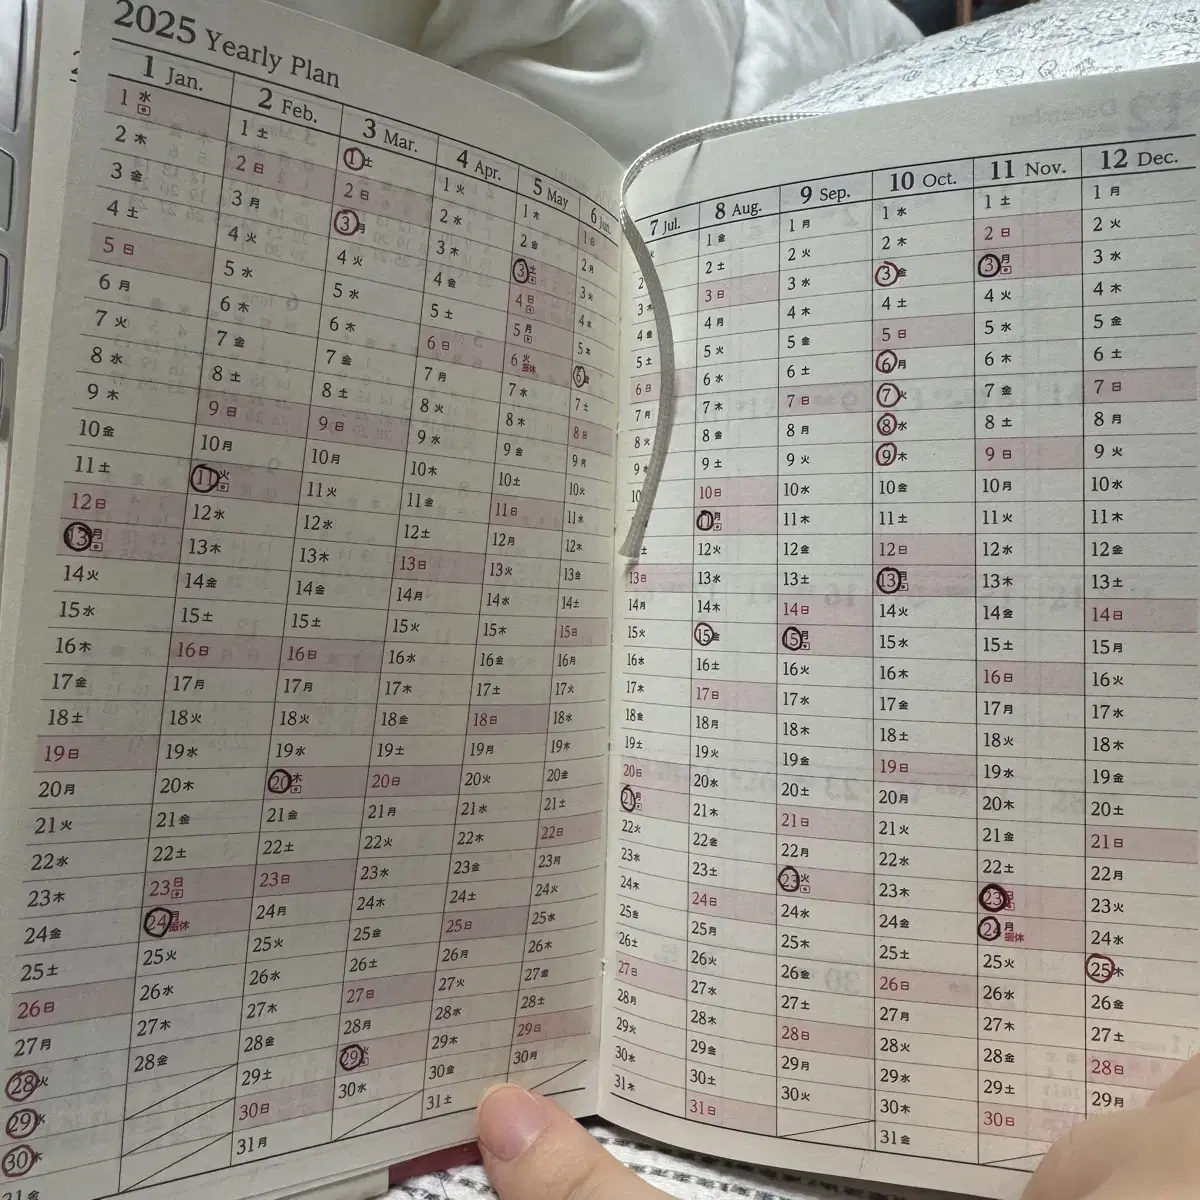 2025 Yearly Plan
1 Jan.
1 水
2 木
3 金
4 土
5 日
6 月
7 火
8 水
9 木
10 金
11 土
12 日
13 月
14 火
15 水
16 木
17 金
18 土
19 日
20 月
21 火
22 水
23 木
24 金
25 土
26 日
27 月
28 火
29 水
30 木
31 金
2 Feb.
1 土
2 日
3 月
4 火
5 水
6 木
7 金
8 土
9 日
10 月
11 火
12 水
13 木
14 金
15 土
16 日
17 月
18 火
19 水
20 木
21 金
22 土
23 日
24 月 振休
25 火
26 水
27 木
28 金
3 Mar.
1 土
2 日
3 月
4 火
5 水
6 木
7 金
8 土
9 日
10 月
11 火
12 水
13 木
14 金
15 土
16 日
17 月
18 火
19 水
20 木
21 金
22 土
23 日
24 月
25 火
26 水
27 木
28 金
29 土
30 日
31 月
4 Apr.
1 火
2 水
3 木
4 金
5 土
6 日
7 月
8 火
9 水
10 木
11 金
12 土
13 日
14 月
15 火
16 水
17 木
18 金
19 土
20 日
21 月
22 火
23 水
24 木
25 金
26 土
27 日
28 月
29 火
30 水
5 May
1 木
2 金
3 土
4 日
5 月
6 火 振休
7 水
8 木
9 金
10 土
11 日
12 月
13 火
14 水
15 木
16 金
17 土
18 日
19 月
20 火
21 水
22 木
23 金
24 土
25 日
26 月
27 火
28 水
29 木
30 金
31 土
6 Jun.
1 日
2 月
3 火
4 水
5 木
6 金
7 土
8 日
9 月
10 火
11 水
12 木
13 金
14 土
15 日
16 月
17 火
18 水
19 木
20 金
21 土
22 日
23 月
24 火
25 水
26 木
27 金
28 土
29 日
30 月
7 Jul.
2
3 木
4 金
5 土
6 日
7 月
8 火
9
10
土
13 日
14 月
15 火
16 水
17 木
18 金
19 土
20 日
21 月
22 火
23 水
24 木
25 金
26 土
27 日
28 月
29 火
30 水
31 木
8 Aug.
1 金
2 土
3 日
4 月
5 火
6 水
7 木
8 金
9 土
10 日
11 月
12 火
13 水
14 木
15 金
16 土
17 日
18 月
19 火
20 水
21 木
22 金
23 土
24 日
25 月
26 火
27 水
28 木
29 金
30 土
31 日
9 Sep.
1 月
2 火
3 水
4 木
5 金
6 土
7 日
8 月
9 火
10 水
11 木
12 金
13 土
14 日
15 月
16 火
17 水
18 木
19 金
20 土
21 日
22 月
23 火
24 水
25 木
26 金
27 土
28 日
29 月
30 火
10 Oct.
1 水
2 木
3 金
4 土
5 日
6 月
7 火
8 水
9 木
10 金
11 土
12 日
13 月
14 火
15 水
16 木
17 金
18 土
19 日
20 月
21 火
22 水
23 木
24 金
25 土
26 日
27 月
28 火
29 水
30 木
31 金
11 Nov.
1 土
2 日
3 月
4 火
5 水
6 木
7 金
8 土
9 日
10 月
11 火
12 水
13 木
14 金
15 土
16 日
17 月
18 火
19 水
20 木
21 金
22 土
23 日
24 月 振休
25 火
26 水
27 木
28 金
29 土
30 日
12 Dec.
1 月
2 火
3 水
4 木
5 金
6 土
7 日
8 月
9 火
10 水
11 木
12 金
13 土
14 日
15 月
16 火
17 水
18 木
19 金
20 土
21 日
22 月
23 火
24 水
25 木
26 金
27 土
28 日
29 月